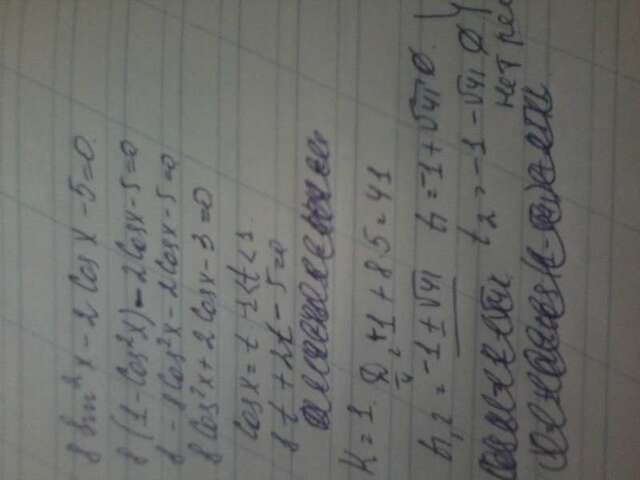 8 sin²x - 2 cos x - 5 = 0
8 (1 - cos²x) - 2 cos x - 5 = 0
8 - 8 cos²x - 2 cos x - 5 = 0
8 cos²x + 2 cos x - 3 = 0
cos x = t -1 < t < 1
8t + 2t - 5 = 0
K = 1. D/4 = 1 + 8·5 = 41
t₁,₂ = -1 ± √41 t₁ = -1 + √41 ∅
t₂ = -1 - √41 ∅
нет реш